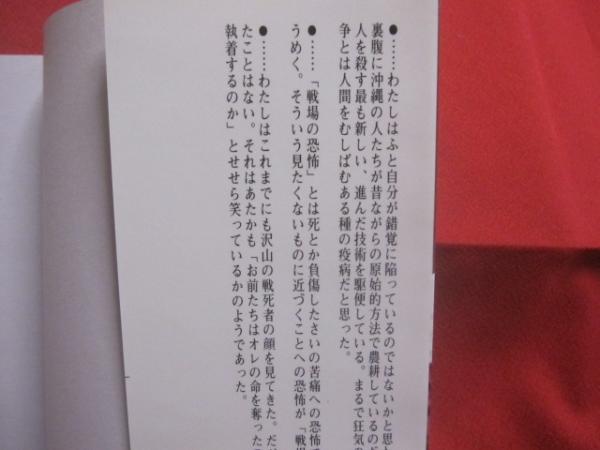 ●……わたしはふと自分が錯覚に陥っているのではないかと思
裏腹に沖縄の人たちが昔ながらの原始的方法で農耕しているのだ
人を殺す最も新しい、進んだ技術を駆使している。まるで狂気
争とは人間をむしばむある種の疫病だと思った。
●……「戦場の恐怖」とは死とか負傷したさいの苦痛への恐怖で
うめく。そういう見たくないものに近づくことへの恐怖が「戦場
●……わたしはこれまでにも沢山の戦死者の顔を見てきた。だが
たことはない。それはあたかも「お前たちはオレの命を奪った
執着するのか」とせせら笑っているかのようであった。